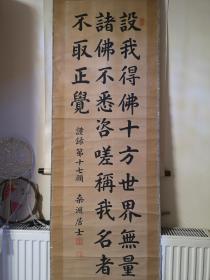 設我得佛十方世界無量
諸佛不悉咨嗟稱我名者
不取正覺
謹録第十七願 桑遍居士